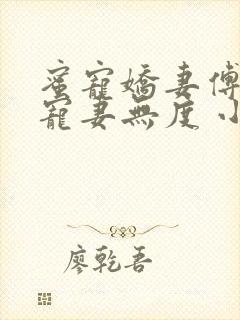 蜜寵嬌妻傅
寵妻無度 小
廖乾吾